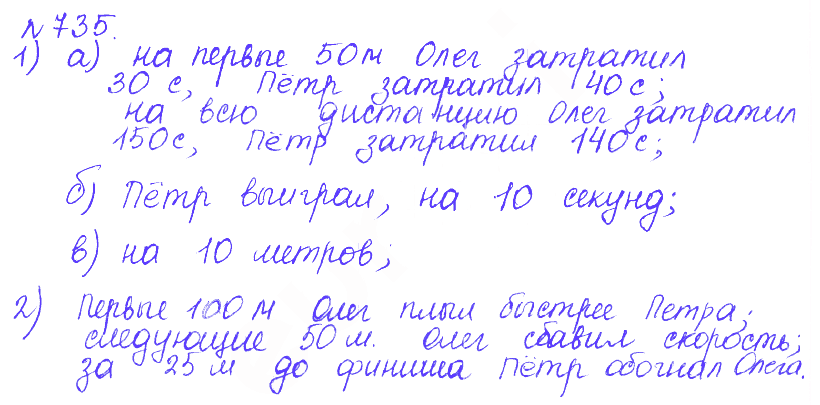 №735.
1) а) на первые 50м Олег затратил
30 с, Пётр затратил 40с;
на всю дистанцию Олег затратил
150с, Пётр затратил 140с;
б) Пётр выиграл, на 10 секунд;
в) на 10 метров;
2) Первые 100м Олег плыл быстрее Петра;
следующие 50м. Олег сбавил скорость;
за 25м до финиша Пётр обогнал Олега.